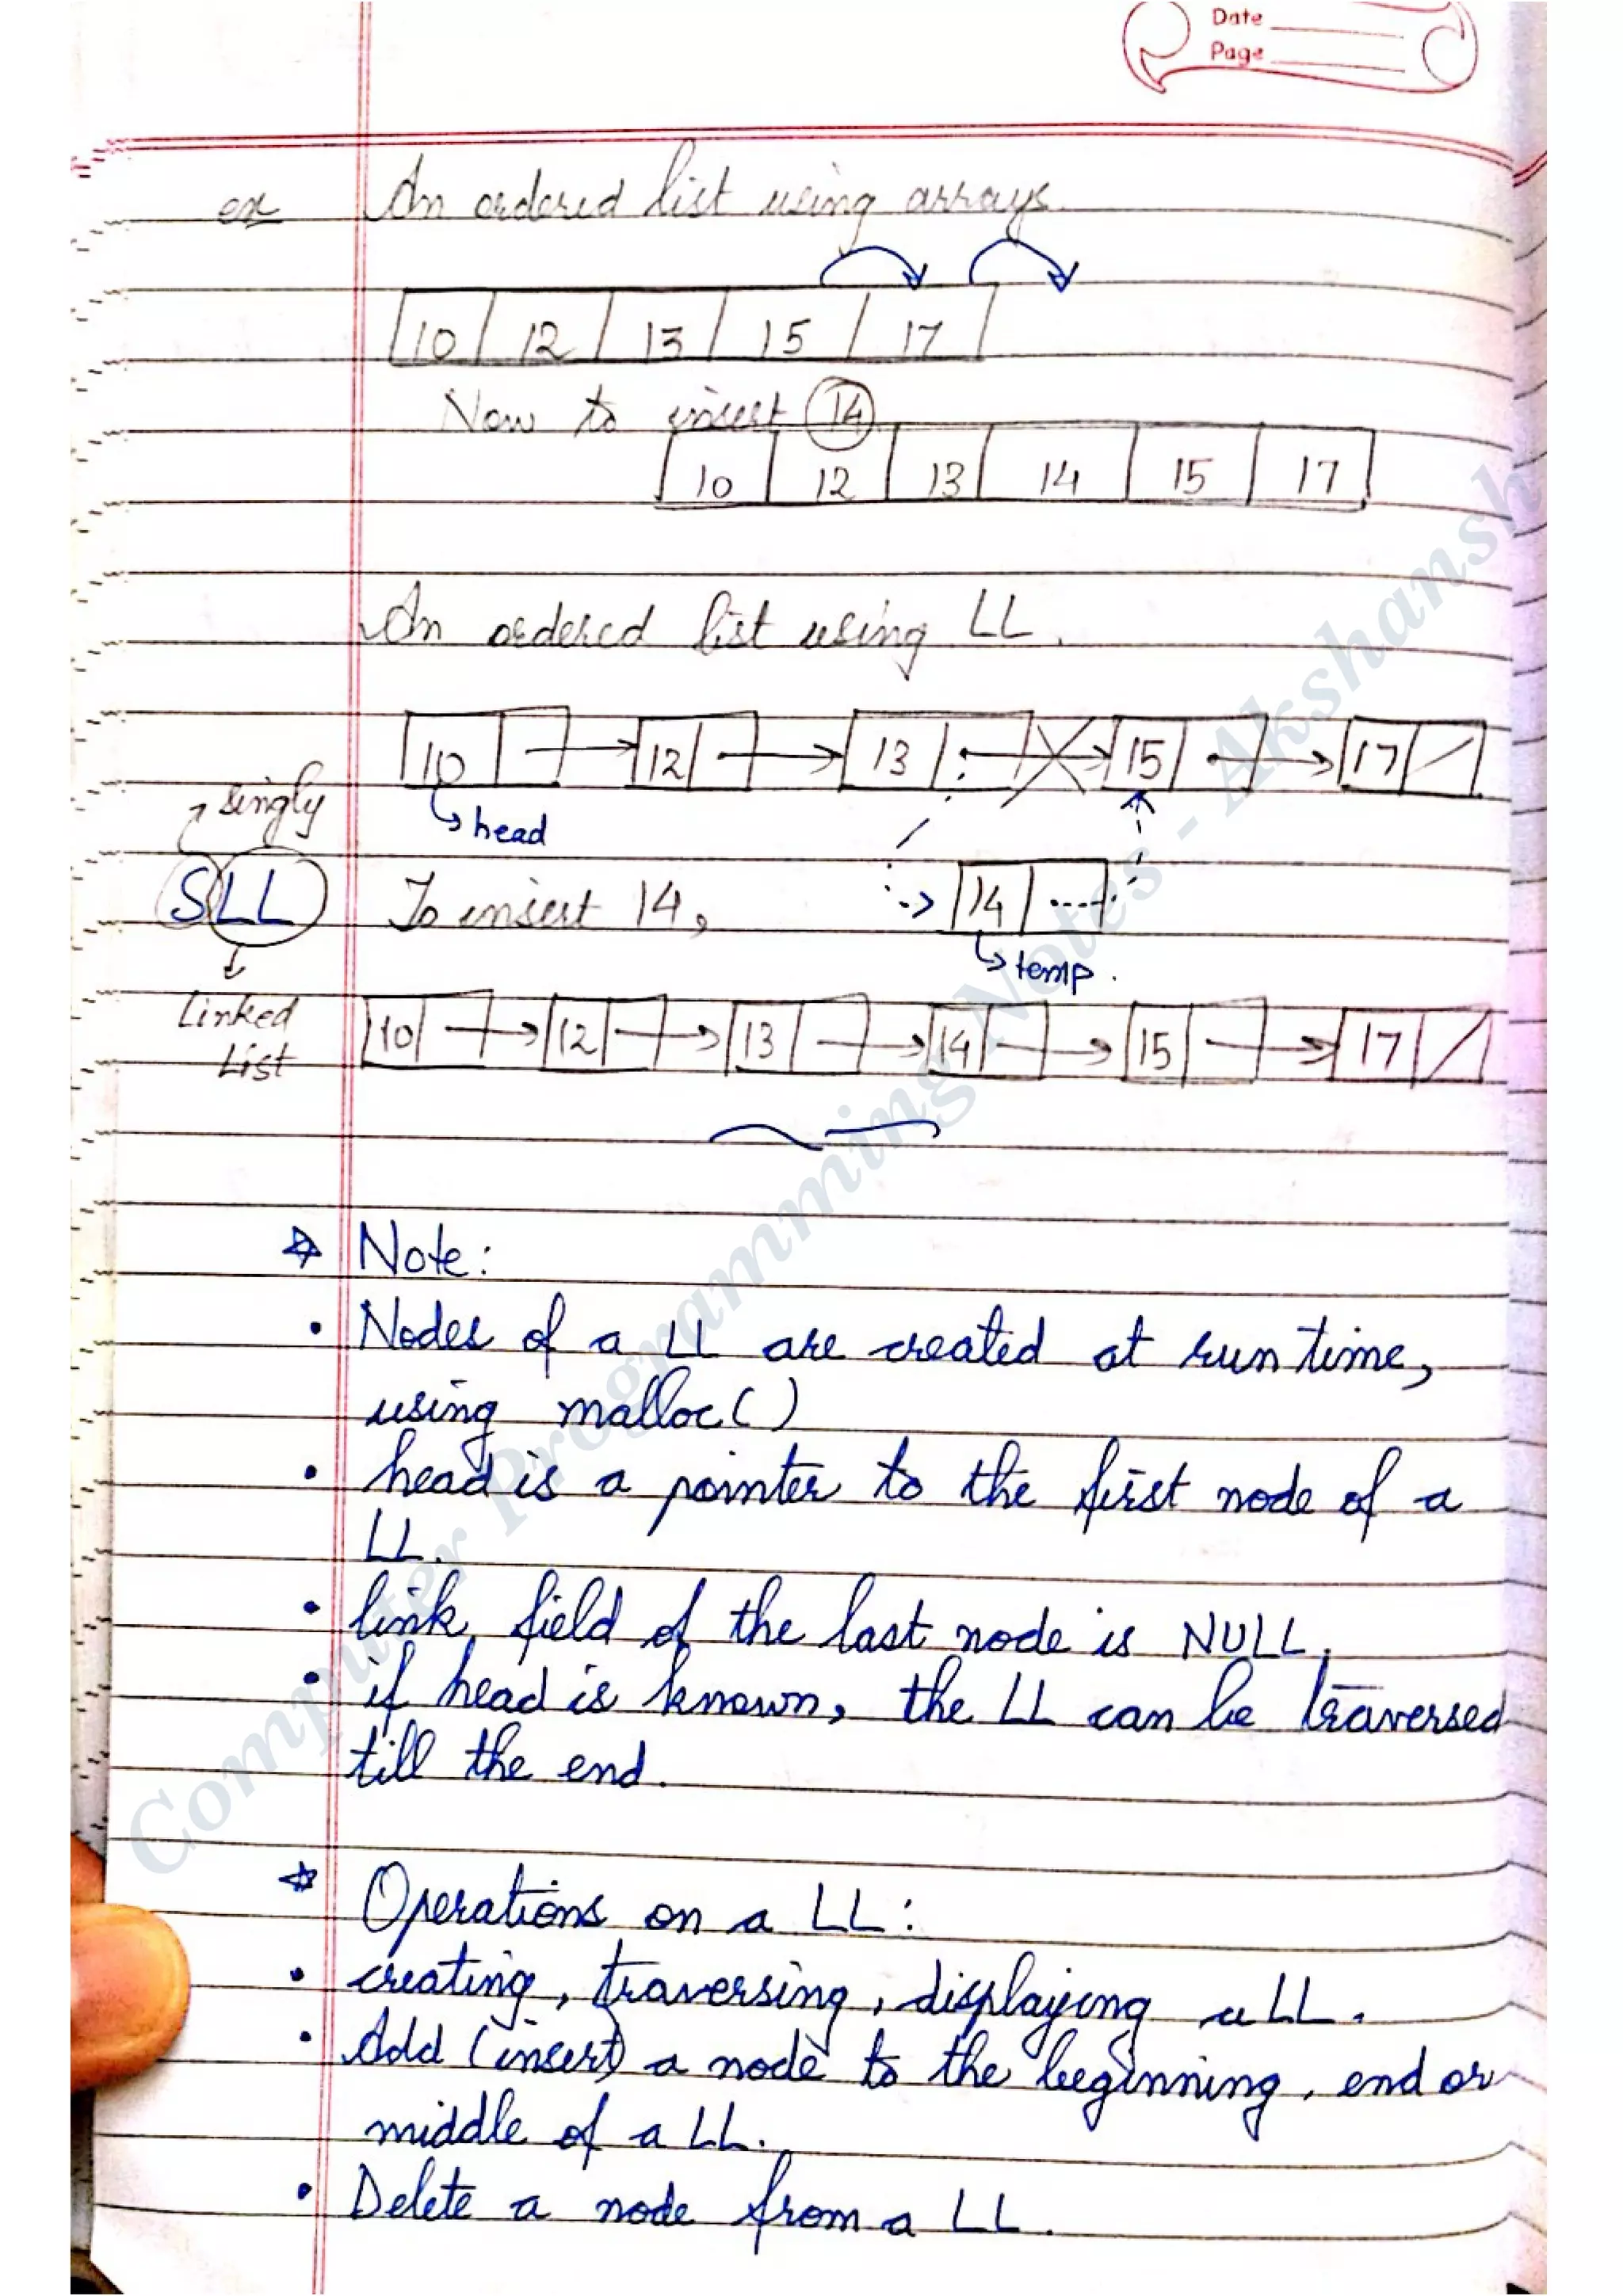 Date
Page
ex An ordered list using arrays.
10 12 13 15 17
Now to insert 14
10 12 13 14 15 17
An ordered list using LL.
10 12 13 15 17
singly
head
SLL To insert 14, 14
temp.
Linked
List
10 12 13 14 15 17
Note:
• Nodes of a LL are created at run time,
using malloc()
• head is a pointer to the first node of a
LL.
• link field of the last node is NULL.
• if head is known, the LL can be traversed
till the end.
Operations on a LL:
• creating, traversing, displaying a LL.
• Add (insert) a node to the beginning, end or
middle of a LL.
• Delete a node from a LL.
Computer Programming Notes - Akshansh